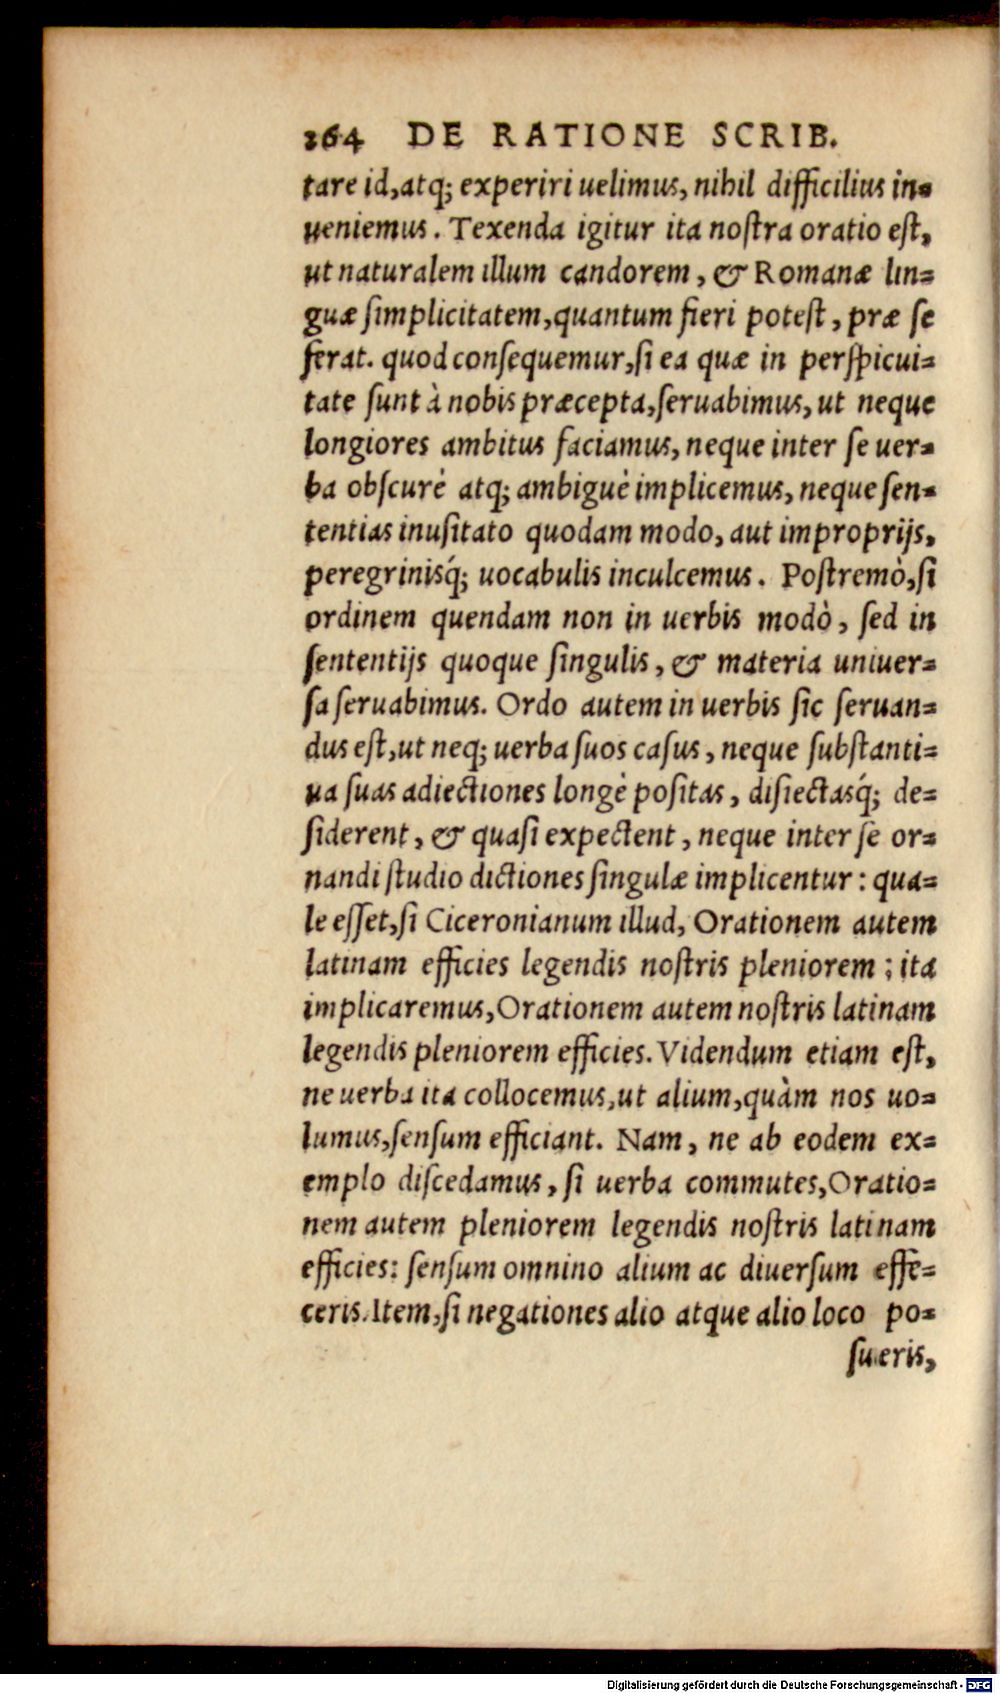 264 DE RATIONE SCRIB.
tare id,atq; experiri uelimus, nihil difficilius in-
ueniemus. Texenda igitur ita noſtra oratio eſt,
ut naturalem illum candorem, & Romanæ lin-
guæ ſimplicitatem,quantum fieri poteſt, præ ſe
ferat. quod conſequemur,ſi ea quæ in perſpicui-
tate ſunt à nobis præcepta,ſeruabimus, ut neque
longiores ambitus faciamus, neque inter ſe uer-
ba obſcurè atq; ambiguè implicemus, neque ſen-
tentias inuſitato quodam modo, aut improprijs,
peregrinisq́; uocabulis inculcemus. Poſtremò,ſi
ordinem quendam non in uerbis modò, ſed in
ſententijs quoque ſingulis, & materia uniuer-
ſa ſeruabimus. Ordo autem in uerbis ſic ſeruan-
dus eſt,ut neq; uerba ſuos caſus, neque ſubſtanti-
ua ſuas adiectiones longè poſitas, diſiectasq́; de-
ſiderent, & quaſi expectent, neque inter ſe or-
nandi ſtudio dictiones ſingulæ implicentur: qua-
le eſſet,ſi Ciceronianum illud, Orationem autem
latinam efficies legendis noſtris pleniorem; ita
implicaremus,Orationem autem noſtris latinam
legendis pleniorem efficies. Videndum etiam eſt,
ne uerba ita collocemus,ut alium,quàm nos uo-
lumus,ſenſum efficiant. Nam, ne ab eodem ex-
emplo diſcedamus, ſi uerba commutes,Oratio-
nem autem pleniorem legendis noſtris latinam
efficies: ſenſum omnino alium ac diuerſum effe-
ceris.Item,ſi negationes alio atque alio loco po-
ſueris,
Digitalisierung gefördert durch die Deutsche Forschungsgemeinschaft - DFG